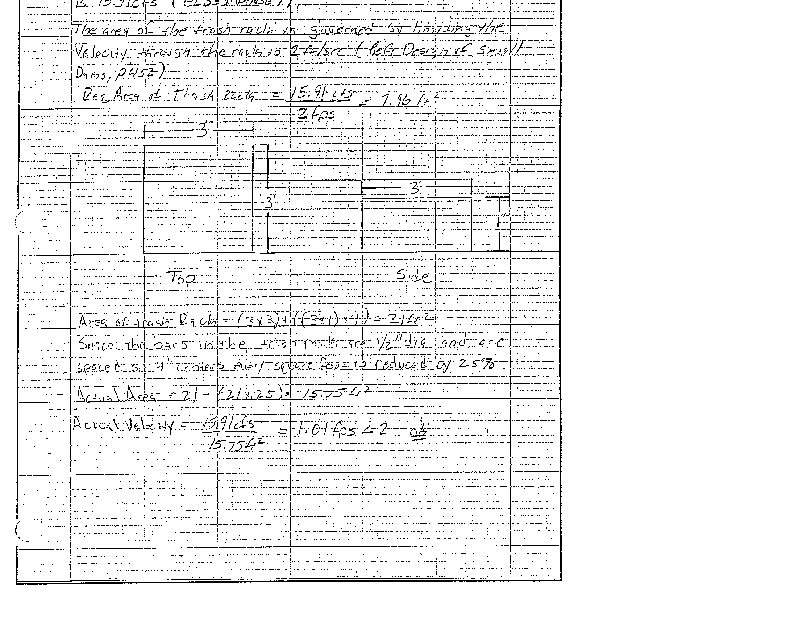 is 15.91 cfs
The area of the trash rack is governed by limiting the
Velocity through the rack to 2 ft/sec (Ref: Design of Small
Dams, p 452)
Req Area of Trash Rack = 15.91 cfs / 2 fps = 7.96 ft²
3'
3'
3'
1'
Top
Side
Area of Trash Rack = (3x3) + ((3x1) x 4) = 21 ft²
Since the bars in the trash rack are 1/2" dia. and are
spaced at 4" open area is reduced by 25%
Actual Area = 21 - (21x.25) = 15.75 ft²
Actual Velocity = 15.91 cfs / 15.75 ft² = 1.01 fps < 2 ok